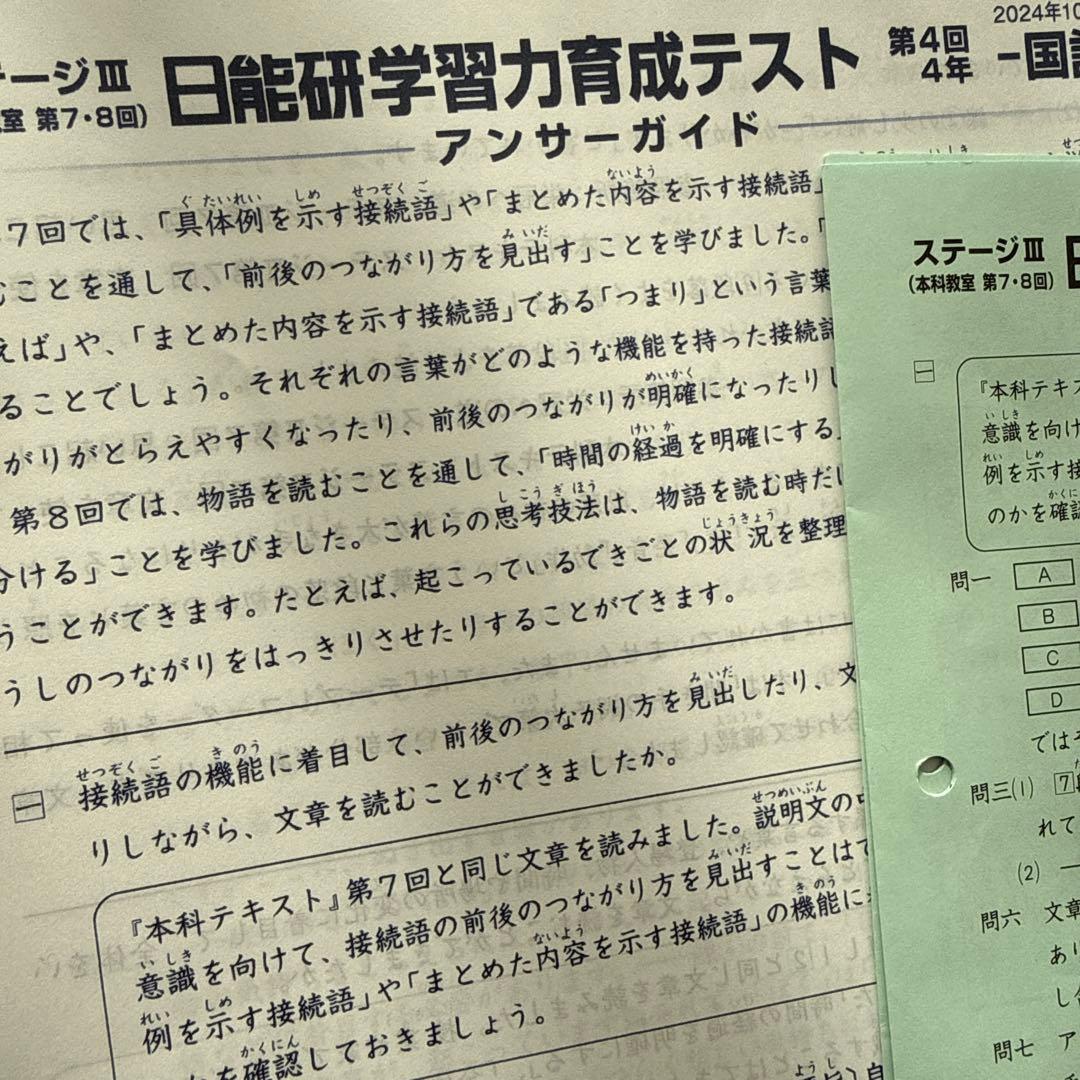 テージⅢ
室 第7・8回)
日能研学習力育成テスト
第4回
4年
2024年10
-国語
アンサーガイド
7回では、「具体例を示す接続語」や「まとめた内容を示す接続語」
むことを通して、「前後のつながり方を見出す」ことを学びました。「
えば」や、「まとめた内容を示す接続語」である「つまり」という言葉
ることでしょう。それぞれの言葉がどのような機能を持った接続語
がりがとらえやすくなったり、前後のつながりが明確になったりし
第8回では、物語を読むことを通して、「時間の経過を明確にする」
分ける」ことを学びました。これらの思考技法は、物語を読む時だけ
うことができます。たとえば、起こっているできごとの状況を整理
うしのつながりをはっきりさせたりすることができます。
一 接続語の機能に着目して、前後のつながり方を見出したり、文
りしながら、文章を読むことができましたか。
『本科テキスト』第7回と同じ文章を読みました。説明文の中
意識を向けて、接続語の前後のつながり方を見出すことはで
例を示す接続語」や「まとめた内容を示す接続語」の機能に
を確認しておきましょう。
ステージⅢ
(本科教室 第7・8回)
日
一
『本科テキス
意識を向け
例を示す接
のかを確認
問一 A
B
C
D
ではそ
問三(1) 7段
れて
(2) ー
問六 文章
あり
し
問七 ア